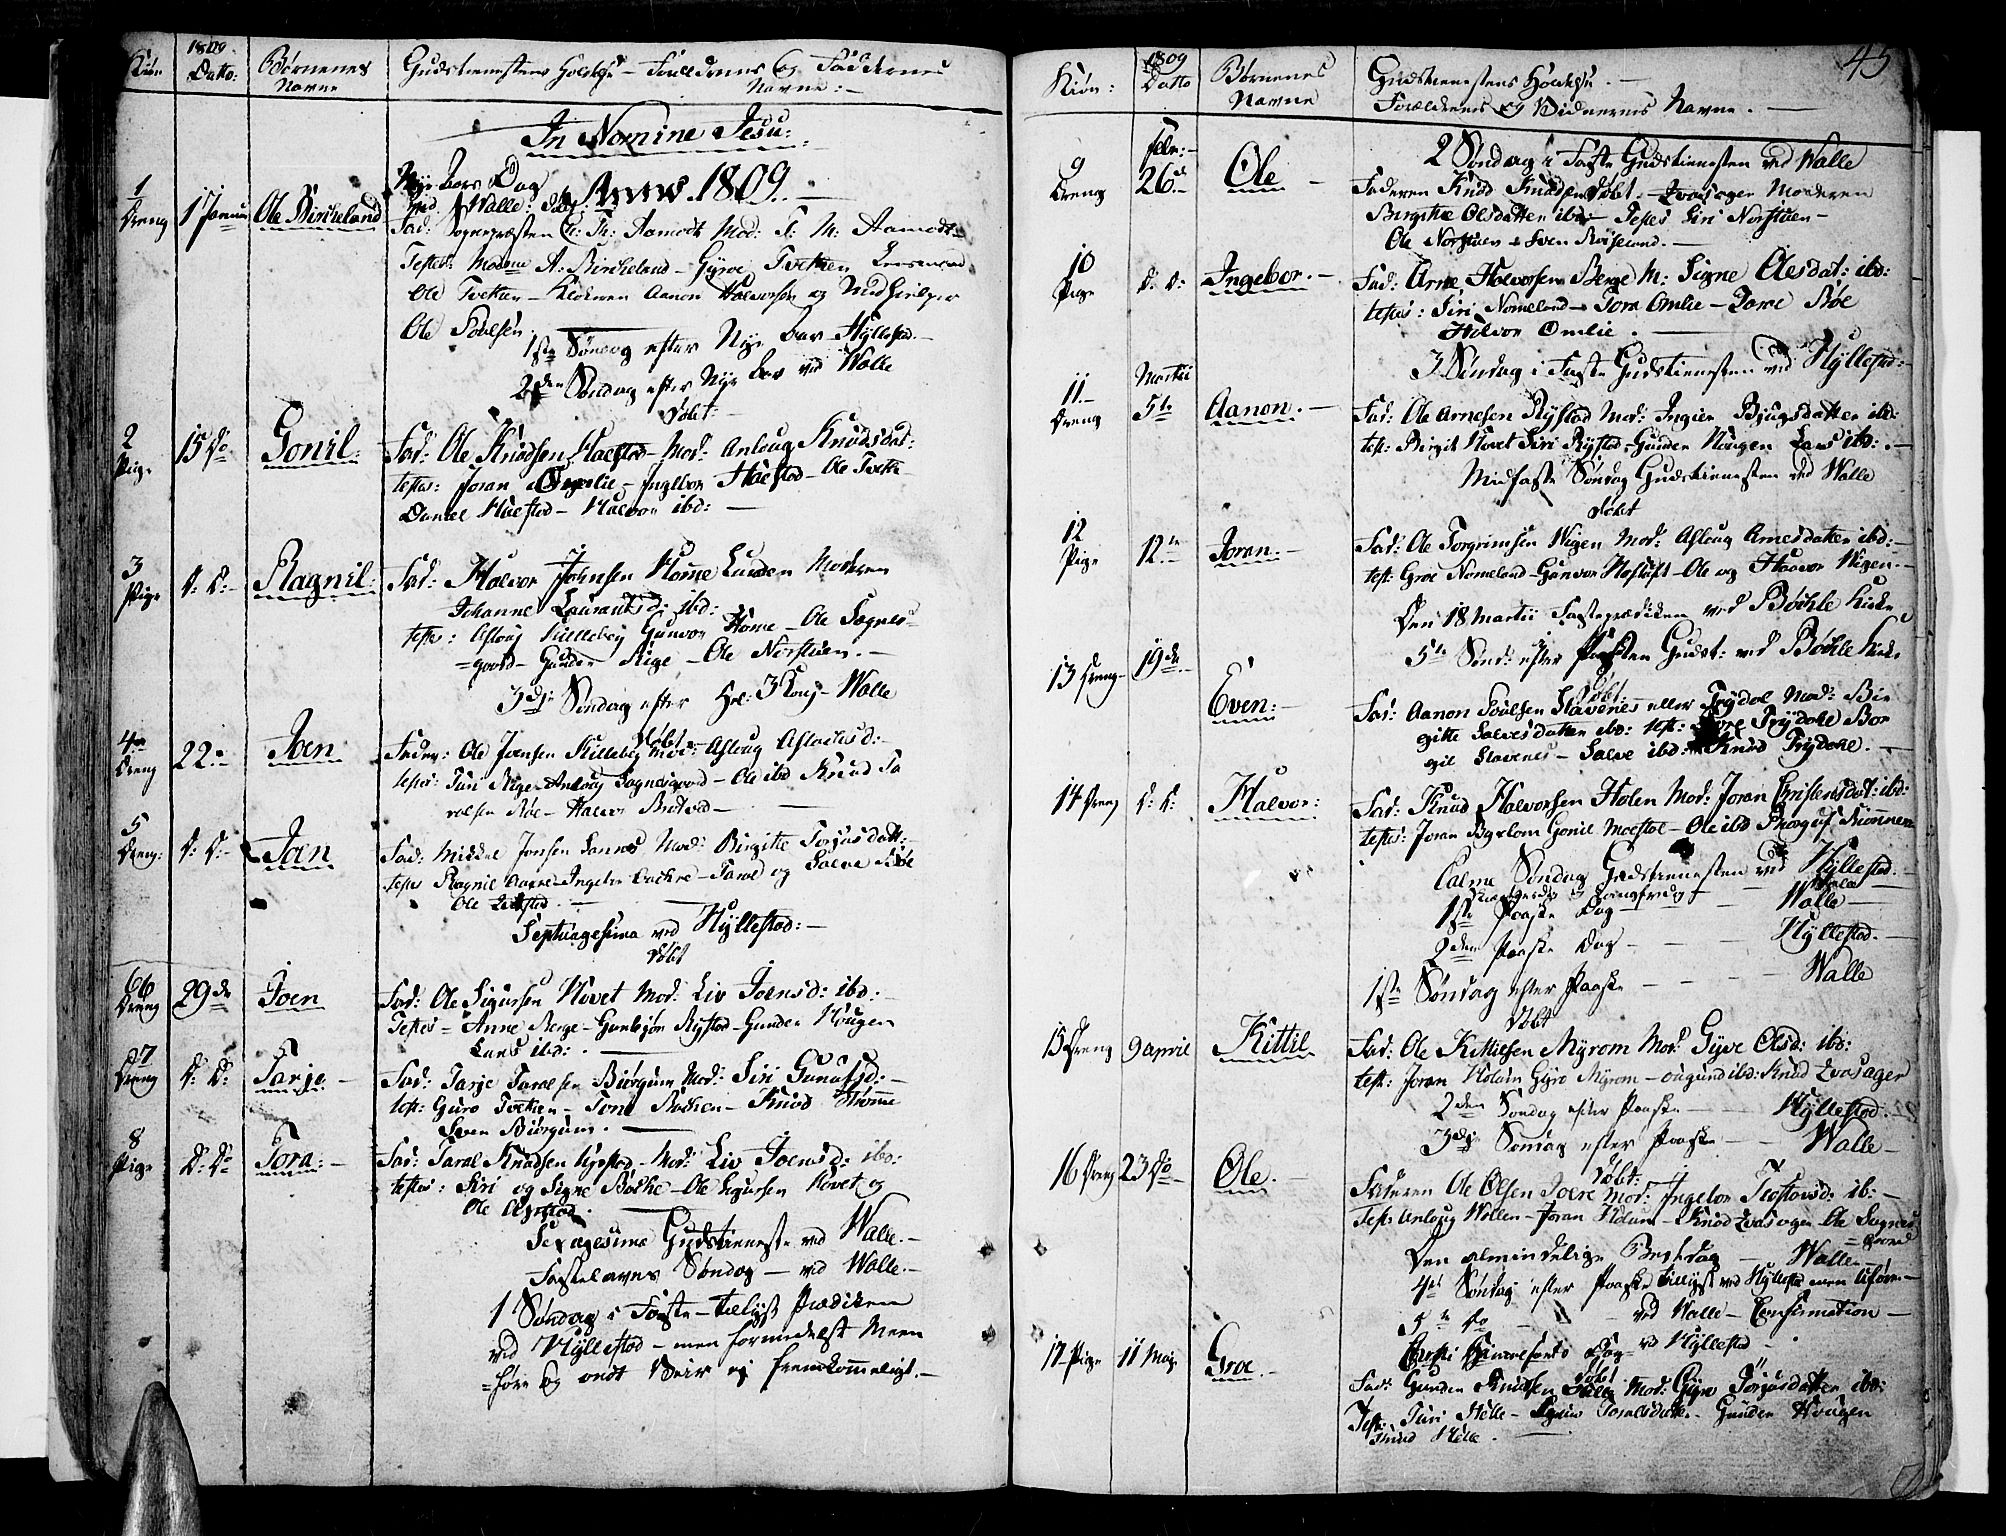 Kiön
1809
Datto:
Börnenes
Navne
Gudstienestens Holdelse - Forældrenes Og Faddernes
Navne:-
In Nomine Jesu:
Nye Aars Dag
ved Walle
Anno 1809.
1
Dreng
1 Januar
Ole Birkeland
Fad: Sognepræsten Aamodt Mod: Aamodt
Testes: Madme A: Birkeland - Gyroe Tveten
Ole Tveten - Klokeren Aanon Halvorsen og Medhielper
Ole Poulsen.
1ste Søndag efter Nye Aar Hyllestad.-
2den Søndag efter Nye Aar ved Walle
Døbt:
2
Pige
15 Do
Gonil:
Fad: Ole Knudsen Harstad - Mod: Anlaug Knudsdat:
testes: Joran Omlie - Ingebor Harstad - Ole Tveten
Daniel Harstad - Halvor ibd:
3
Pige
D: D:
Ragnil:
Fad: Halvor Johnsen Homme Lunden Moderen
Johanne Laurantsd: ibd:
testes: Aslaug Killeberg Gunvor Home - Ole Sognes=
=gaard - Gunder Rige - Ole Norstuen.-
3die Søndag efter Hel: 3 Kong - Walle
4
Dreng
22
Joen
Døbt
Fader: Ole Joensen Killeberg Mod: Aslaug Aslachsd:
testes: Juri Rige Anlaug Sognesgaard - Ole ibd Knud Ta
ralsen Røe - Halvor Brotved -
5
Dreng:
D: D:
Jan
Fad: Mikkel Jonsen Sannes Mod: Birgitte Torjusdatt:
testes Ragnil Aakre - Ingebor Aackre - Tarel og Salve Røe
Ole
Septuagesima ved Hyllestad:-
Døbt
6
Dreng
29de
Joen
Fad: Ole Sigursen Hovet Mod: Liv Joensd: ibd:
Testes = Anne Berge - Gunbjør Rystad - Gunder Hougen
Lars ibd:
7
Dreng
D: D:
Tarje
Fad: Tarje Taralsen Biørgum Mod: Siri Gunufsd:-
test: Guro Tveten - Tone Backen - Knud Homme
Sven Biørgum.
8
Pige
D: Do
Tora
Fad: Taral Knudsen Rystad - Mod: Liv Joensd: ibd:
testes: Siri og Signe Bøcke - Ole Sigursen Hovet og
Ole Rystad.
Sexagesima Gudstieneste ved Walle.-
Fastelavns Søndag - ved Walle.-
1 Søndag i Faste - tillyst Prædiken
ved Hyllestad - men formedelst Meen
=føre Og ondt Veir ej fremkommeligt.-
45
Kiön:
1809
Datto
Börnenes
Navne
Gudstienestens Holdelse.-
Forældrenes og Vidnernes Navne.-
2 Søndag i Faste Gudstienesten ved Walle
9
Dreng
Febr:
26d
Ole
Døbt
Faderen Knud Knudsen Qvasager Moderen
Birgithe Olsdatter ibd:- Testes Siri Norstuen -
Ole Norstuen - Sven Røiseland.
10
Pige
D: D:
Ingebor.-
Fad: Arne Halvorsen Berge M: Signe Olesdat: ibd:
testes: Siri Nomeland - Tora Omlie - Tarel Røe
Halvor Omlie.
3 Søndag i Faste Gudstienesten ved Hyllestad:
11
Dreng
Martii
5te
Aanon.-
Fad: Ole Arnesen Rystad Mod: Ingier Bjugsdatter ibd:
test: Birgit Hovet Siri Rystad - Gunder Hougen Lars ibd:.-
Midfaste Søndag Gudstienesten ved Walle
Døbt
12
Pige
12te
Joran.-
Fad: Ole Torgrimsen Wigen Mod: Aslaug Arnesdatter ibd:-
test: Groe Nomeland - Gunvor - Ole og Haavor Wigen.-
Den 18 Martii Fasteprædiken ved Bøchle Kirke
5te Sønd: efter Paasken Gudst: ved Bøchle Kirke
13 Dreng
19de
Even:
Døbt:
Fad: Aanon Poulsen Stavenes eller Trydal Mod: Bir
gitte Salvesdatter ibd: test: Trydahl Bor
gil Stavenes - Salve ibd: Knud Trydahl.
14 Dreng
D: D:
Halvor:
Fad: Knud Halvorsen Holen Mod: Joran Christensdat: ibd:
testes: Joran Bgslom Gonil Mostøl - Ole ibd
Palme Søndag Gudstienesten ved Hyllestad.
Skiertorsdag Langfredag - Walle
1ste Paaske Dag - Walle
2den Paaske Dag - Hyllestad.
1ste Søndag efter Paaske - Walle
Døbt
15 Dreng
9 April
Kittil
Fad: Ole Kittilsen Myrom Mod: Gyve Olsd: ibd:
test: Joran Holum Gyro Myrom - Ougund ibd: Knud Qvasager
2den Søndag efter Paaske - Hyllestad.
3die Søndag efter Paaske - Walle -
16 Dreng
23 Do
Ole.
Døbt:
Faderen Ole Olsen Joere Mod: Ingebor Trostensd: ib:-
Test: Anlaug Wollen - Joran Holum - Knud Qvasager Ole Sagnes
=gaard
Den almindelige Bededag - Walle
4de Søndag efter Paaske tillyst ved Hyllestad men Uføre.-
5te Do - ved Walle - Confirmation -
Christi Himmelfarts Dag ved Hyllestad.
17 Pige
11 Maj
Groe.-
Døbt
Fad: Gunder Knudsen Helle Mod: Gyro Torjusdatter ibd:
Test: Juri Helle - Taralsdatter - Gunder Hougen
Knud Helle.